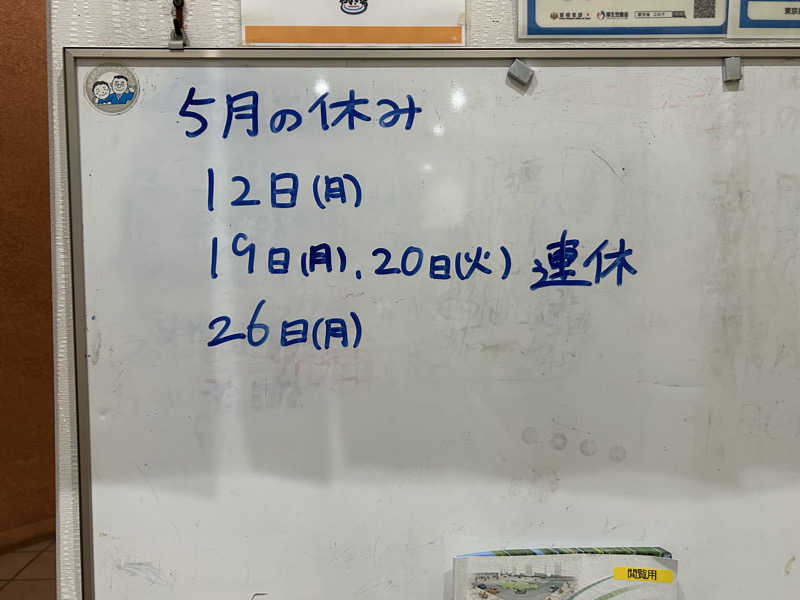 5月の休み
12日(月)
19日(月)、20日(火) 連休
26日(月)
閲覧用